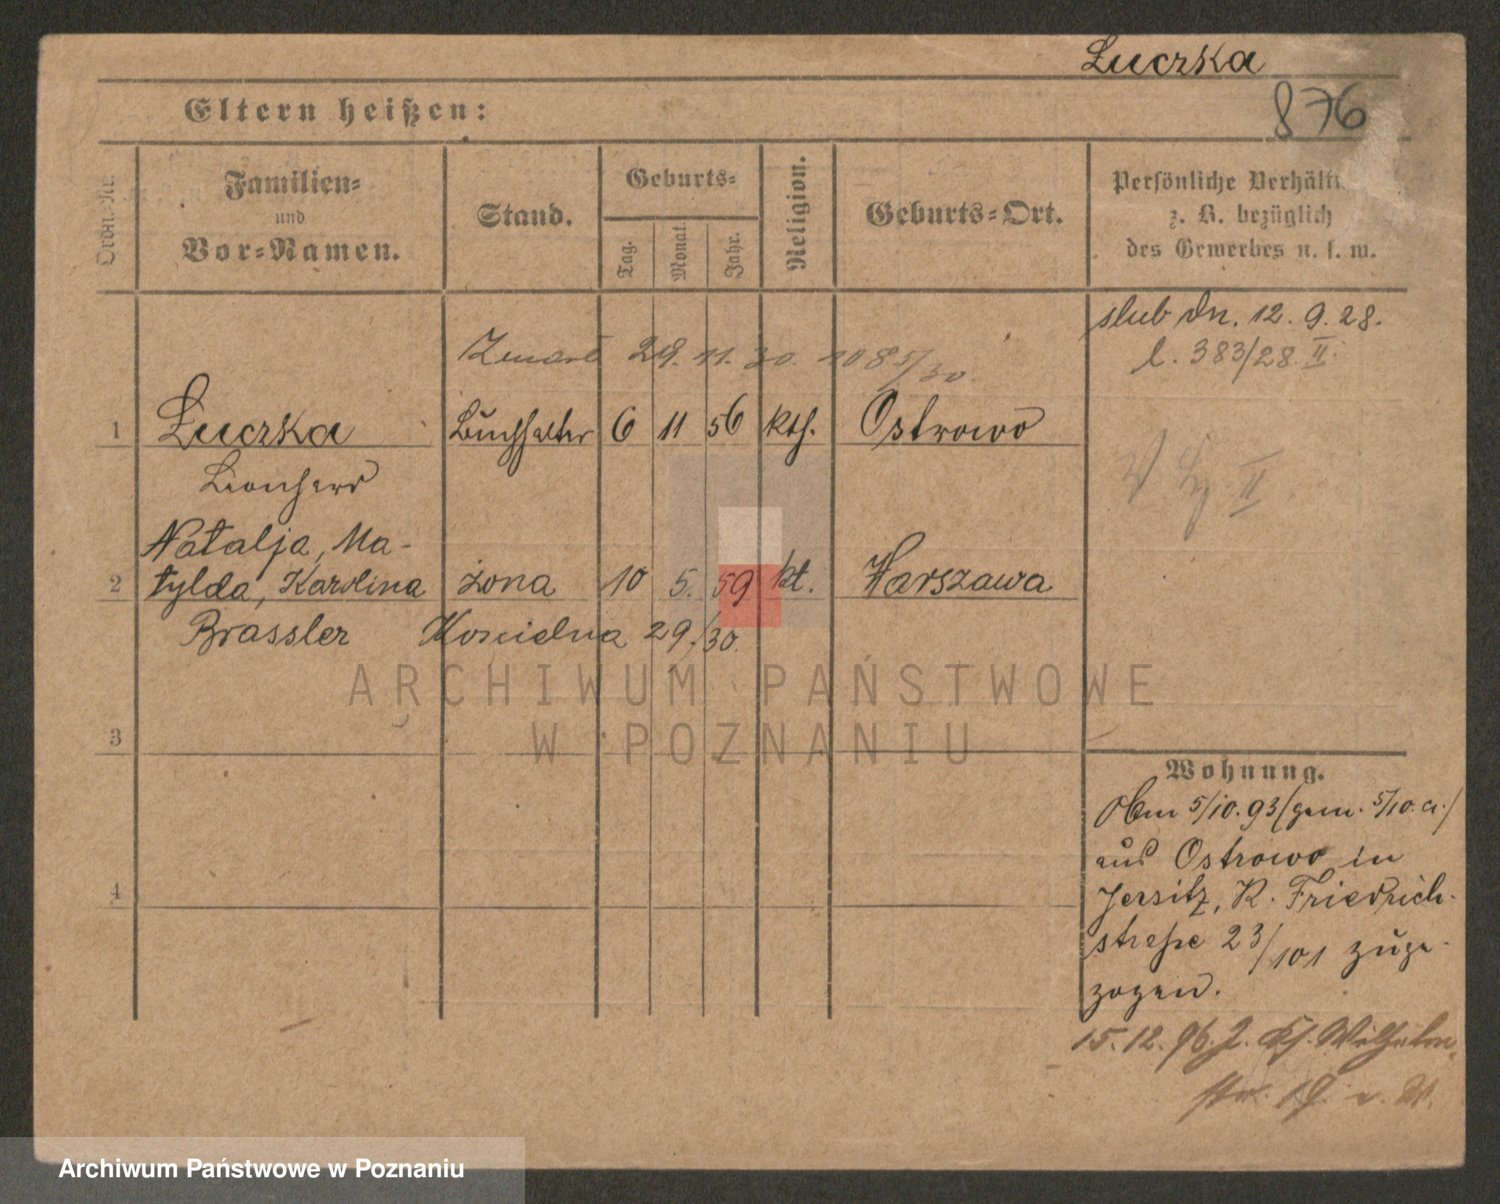 Luczka
876
Eltern heißen:
Ordn. Nr.
Familien=
und
Vor=Namen.
Stand.
Geburts=
Tag.
Monat.
Jahr.
Religion.
Geburts=Ort.
Persönliche Verhält
z. B. bezüglich
des Gewerbes u. s. w.
slub dn. 12. 9. 28.
l. 383/28. II.
Zmarł 29. 11. 30. 1085/30.
1 Luczka Buchhalter 6 11 56 kth. Ostrowo
Lionhard
II
Natalja, Ma-
2 tylda, Karolina żona 10 5. 59 kt. Warszawa
Brassler Kościelna 29./30.
ARCHIWUM PAŃSTWOWE
W POZNANIU
3
4
Wohnung.
Am 5/10. 93 (gem. 5/10. a.)
aus Ostrowo in
Jersitz, K. Friedrich-
straße 23/101 zuge-
zogen.
15. 12. 96. J. Ks. Wilhelm
str. 19
Archiwum Państwowe w Poznaniu